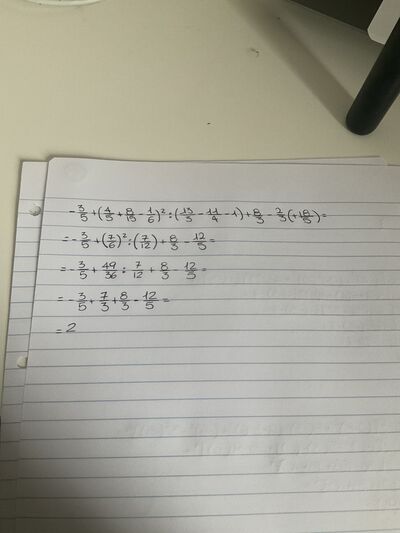 -3/5+(4/5+8/15-1/6)²:(13/3-11/4-1)+8/3-2/3(+18/5)=
=-3/5+(7/6)²:(7/12)+8/3-12/5=
=-3/5+49/36:7/12+8/3-12/5=
=-3/5+7/3+8/3-12/5=
=2